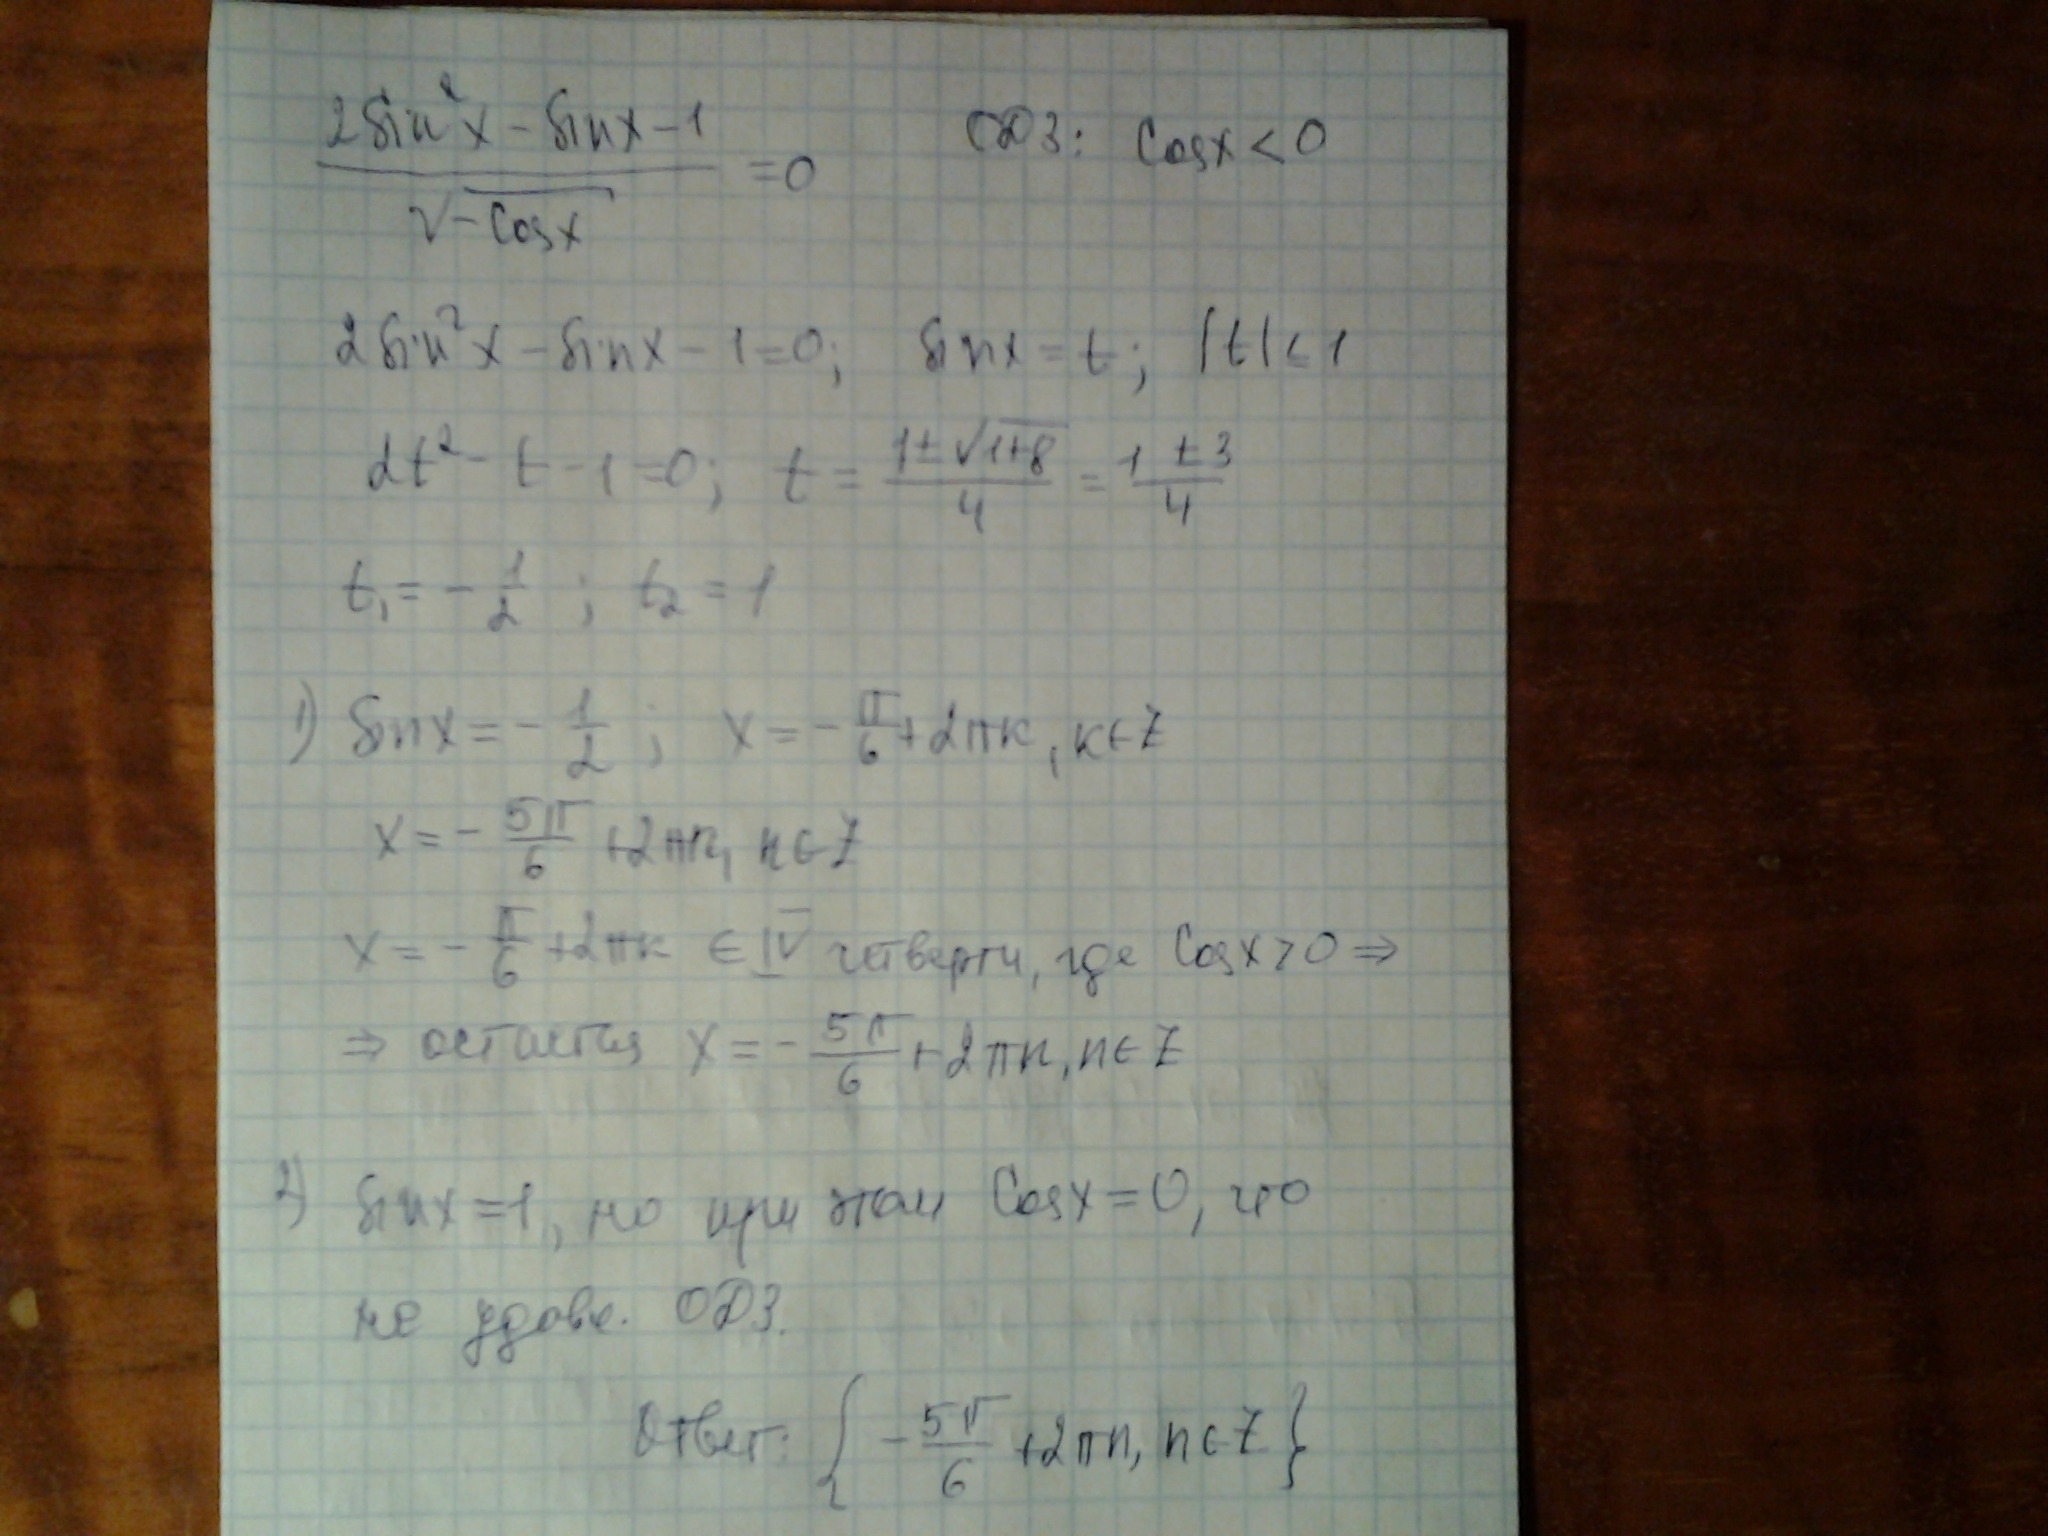 (2sin²x - sinx - 1)/√(-cosx) = 0   ОДЗ: cosx < 0
2sin²x - sinx - 1 = 0; sinx = t; |t| ≤ 1
2t² - t - 1 = 0; t = (1 ± √(1+8))/4 = (1 ± 3)/4
t₁ = -1/2; t₂ = 1
1) sinx = -1/2; x = -π/6 + 2πк, к ∈ Z
x = -5π/6 + 2πn, n ∈ Z
x = -π/6 + 2πк ∈ IV четверти, где cosx > 0 ⇒
⇒ остается x = -5π/6 + 2πn, n ∈ Z
2) sinx = 1, но при этом cosx = 0, что
не удовл. ОДЗ.
Ответ: {-5π/6 + 2πn, n ∈ Z}